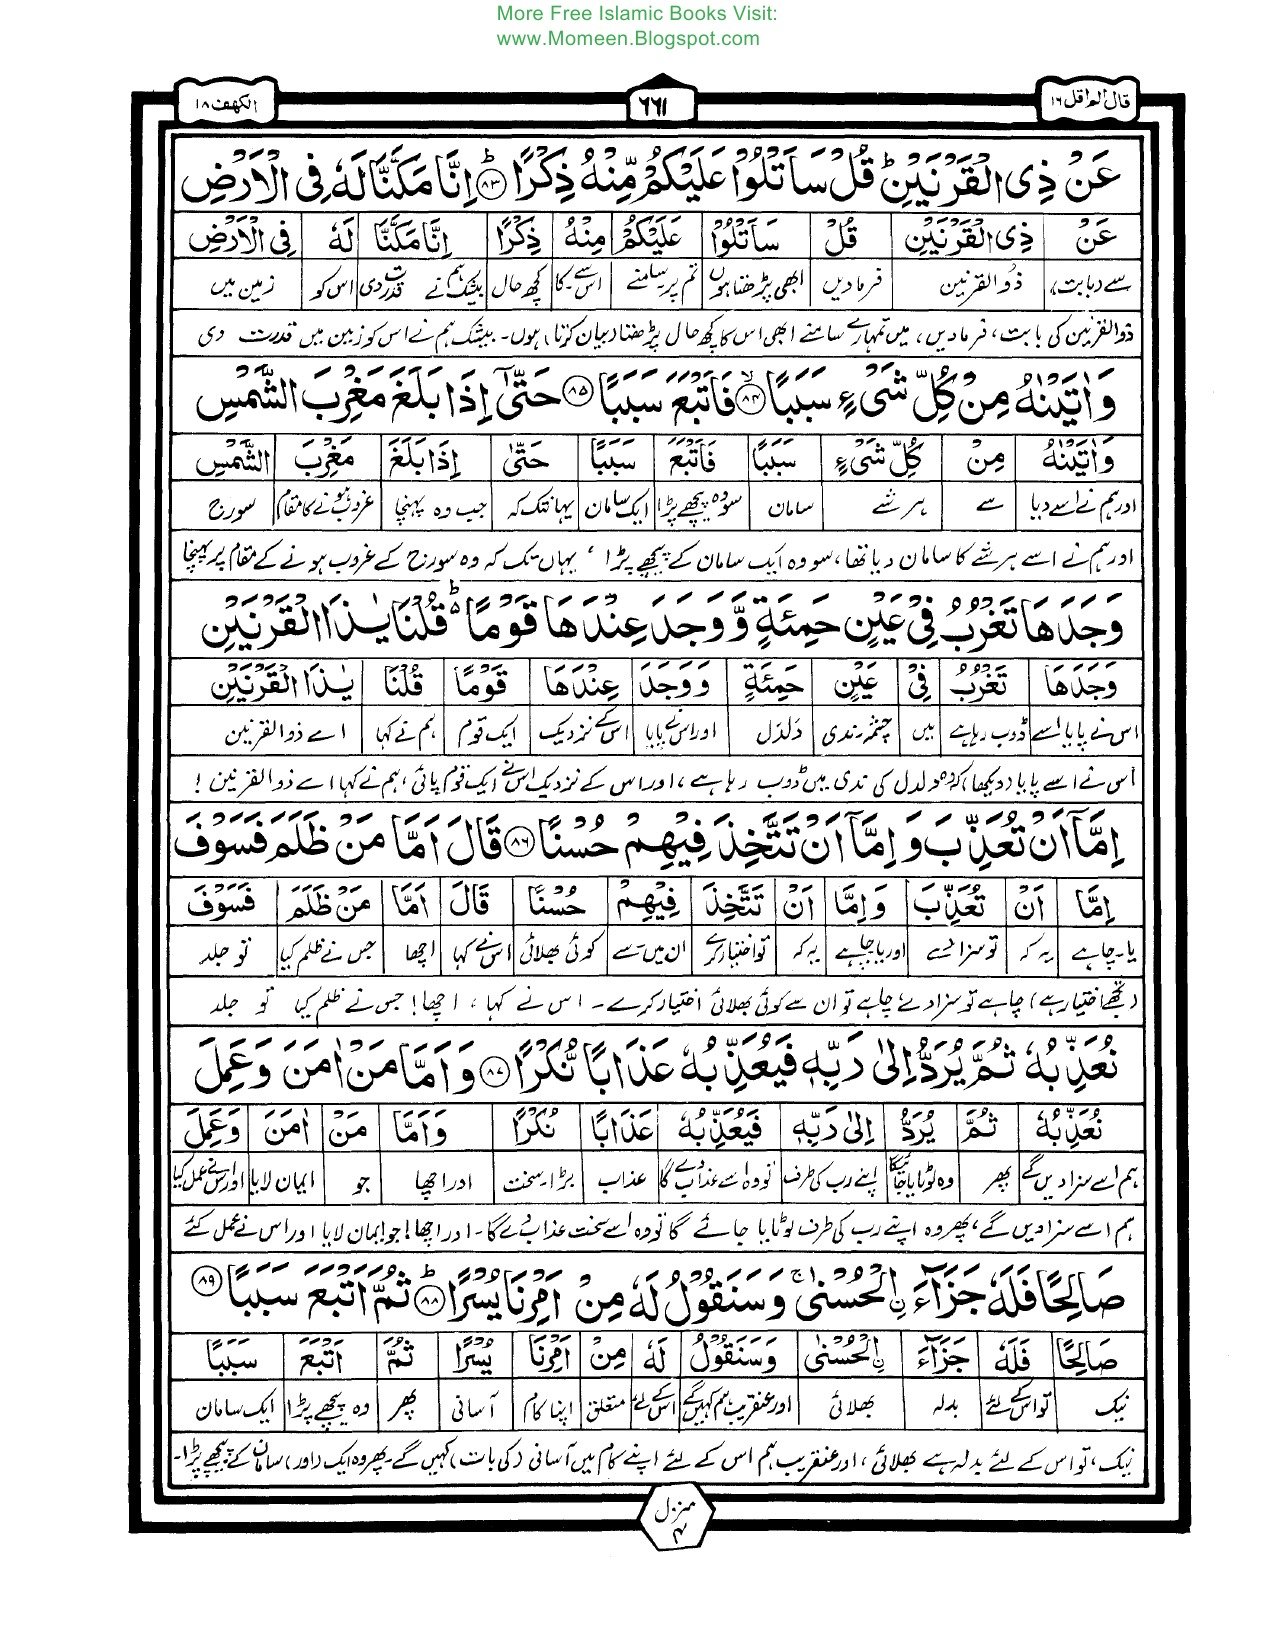 More Free Islamic Books Visit:
www.Momeen.Blogspot.com
قال الم اقل ١٦ ٦٦١ الكهف ١٨
عَنْ ذِی الْقَرْنَیْنِ ؕ قُلْ سَاَتْلُوْا عَلَیْكُمْ مِّنْهُ ذِكْرًا ؕ ﴿۸۳﴾ اِنَّا مَكَّنَّا لَهٗ فِی الْاَرْضِ
عَنْ ذِی الْقَرْنَیْنِ قُلْ سَاَتْلُوْا عَلَیْكُمْ مِنْهُ ذِكْرًا اِنَّا مَكَّنَّا لَهٗ فِی الْاَرْضِ
سے (بابت) ذوالقرنین فرمادیں ابھی پڑھتا ہوں تم پر۔سامنے اس سے۔کا کچھ حال بیشک ہم نے قدرت دی اس کو زمین میں
ذوالقرنین کی بابت، فرمادیں، میں تمہارے سامنے ابھی اس کا کچھ حال پڑھتا (بیان کرتا) ہوں۔ بیشک ہم نے اس کو زمین میں قدرت دی
وَاٰتَیْنٰهُ مِنْ كُلِّ شَیْءٍ سَبَبًا ۙ ﴿۸۴﴾ فَاَتْبَعَ سَبَبًا ﴿۸۵﴾ حَتّٰۤی اِذَا بَلَغَ مَغْرِبَ الشَّمْسِ
وَاٰتَیْنٰهُ مِنْ كُلِّ شَیْءٍ سَبَبًا فَاَتْبَعَ سَبَبًا حَتّٰۤی اِذَا بَلَغَ مَغْرِبَ الشَّمْسِ
اور ہم نے اسے دیا سے ہر شے سامان سو وہ پیچھے پڑا ایک سامان یہانتک کہ جب وہ پہنچا غروب ہونے کا مقام سورج
اور ہم نے اسے ہر شے کا سامان دیا تھا، سو وہ ایک سامان کے پیچھے پڑا، یہاں تک کہ وہ سورج کے غروب ہونے کے مقام پر پہنچا
وَجَدَهَا تَغْرُبُ فِیْ عَیْنٍ حَمِئَةٍ وَّوَجَدَ عِنْدَهَا قَوْمًا ؕ۬ قُلْنَا یٰذَا الْقَرْنَیْنِ
وَجَدَهَا تَغْرُبُ فِیْ عَیْنٍ حَمِئَةٍ وَوَجَدَ عِنْدَهَا قَوْمًا قُلْنَا یٰذَا الْقَرْنَیْنِ
اس نے پایا اسے ڈوب رہا ہے میں چشمہ۔ندی دلدل اور اس نے پایا اس کے نزدیک ایک قوم ہم نے کہا اے ذوالقرنین
اس نے اسے پایا (دیکھا) کہ وہ دلدل کی ندی میں ڈوب رہا ہے، اور اس کے نزدیک اس نے ایک قوم پائی، ہم نے کہا اے ذوالقرنین!
اِمَّاۤ اَنْ تُعَذِّبَ وَاِمَّاۤ اَنْ تَتَّخِذَ فِیْهِمْ حُسْنًا ﴿۸۶﴾ قَالَ اَمَّا مَنْ ظَلَمَ فَسَوْفَ
اِمَّا اَنْ تُعَذِّبَ وَاِمَّا اَنْ تَتَّخِذَ فِیْهِمْ حُسْنًا قَالَ اَمَّا مَنْ ظَلَمَ فَسَوْفَ
یا۔چاہے یہ کہ تو سزا دے اور یا چاہے یہ کہ تو اختیار کرے ان میں۔سے کوئی بھلائی اس نے کہا اچھا جس نے ظلم کیا تو جلد
(تجھے اختیار ہے) چاہے تو سزا دے چاہے تو ان سے کوئی بھلائی اختیار کرے۔ اس نے کہا، اچھا! جس نے ظلم کیا تو جلد
نُعَذِّبُهٗ ثُمَّ یُرَدُّ اِلٰی رَبِّهٖ فَیُعَذِّبُهٗ عَذَابًا نُّكْرًا ﴿۸۷﴾ وَاَمَّا مَنْ اٰمَنَ وَعَمِلَ
نُعَذِّبُهٗ ثُمَّ یُرَدُّ اِلٰی رَبِّهٖ فَیُعَذِّبُهٗ عَذَابًا نُكْرًا وَاَمَّا مَنْ اٰمَنَ وَعَمِلَ
ہم اسے سزا دیں گے پھر وہ لوٹایا جائیگا اپنے رب کی طرف تو وہ اسے عذاب دے گا عذاب بڑا۔سخت اور اچھا جو ایمان لایا اور اس نے عمل کیا
ہم اسے سزا دیں گے، پھر وہ اپنے رب کی طرف لوٹایا جائے گا تو وہ اسے سخت عذاب دے گا۔ اور اچھا! جو ایمان لایا اور اس نے عمل کئے
صَالِحًا فَلَهٗ جَزَآءَ ۨالْحُسْنٰی ۚ وَسَنَقُوْلُ لَهٗ مِنْ اَمْرِنَا یُسْرًا ؕ ﴿۸۸﴾ ثُمَّ اَتْبَعَ سَبَبًا ﴿۸۹﴾
صَالِحًا فَلَهٗ جَزَآءَ ۨالْحُسْنٰی وَسَنَقُوْلُ لَهٗ مِنْ اَمْرِنَا یُسْرًا ثُمَّ اَتْبَعَ سَبَبًا
نیک تو اس کے لئے بدلہ بھلائی اور عنقریب ہم کہیں گے اس کے لئے متعلق اپنا کام آسانی پھر وہ پیچھے پڑا ایک سامان
نیک، تو اس کے لئے بدلہ ہے بھلائی، اور عنقریب ہم اس کے لئے اپنے کام میں آسانی (کی بات) کہیں گے۔ پھر وہ ایک (اور) سامان کے پیچھے پڑا۔
منزل ۴